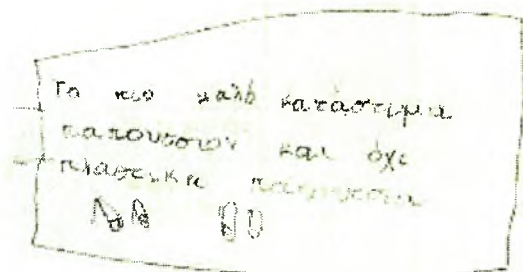 Το πιο καλό κατάστιμα
παπουσιον και όχι
πλαστικα παπουσια